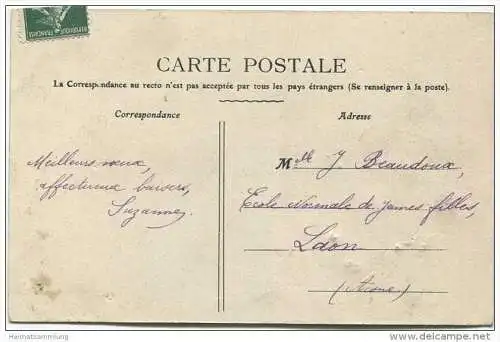 REPUBLIQUE FRANÇAISE
CARTE POSTALE
La Correspondance au recto n'est pas acceptée par tous les pays étrangers (Se renseigner à la poste).
Correspondance
Adresse
Meilleurs vœux,
affectueux baisers,
Suzanne.
Mlle J. Beaudoux,
Ecole Normale de jeunes filles,
Laon
(Aisne)
Heimatsammlung
www.delcampe.net